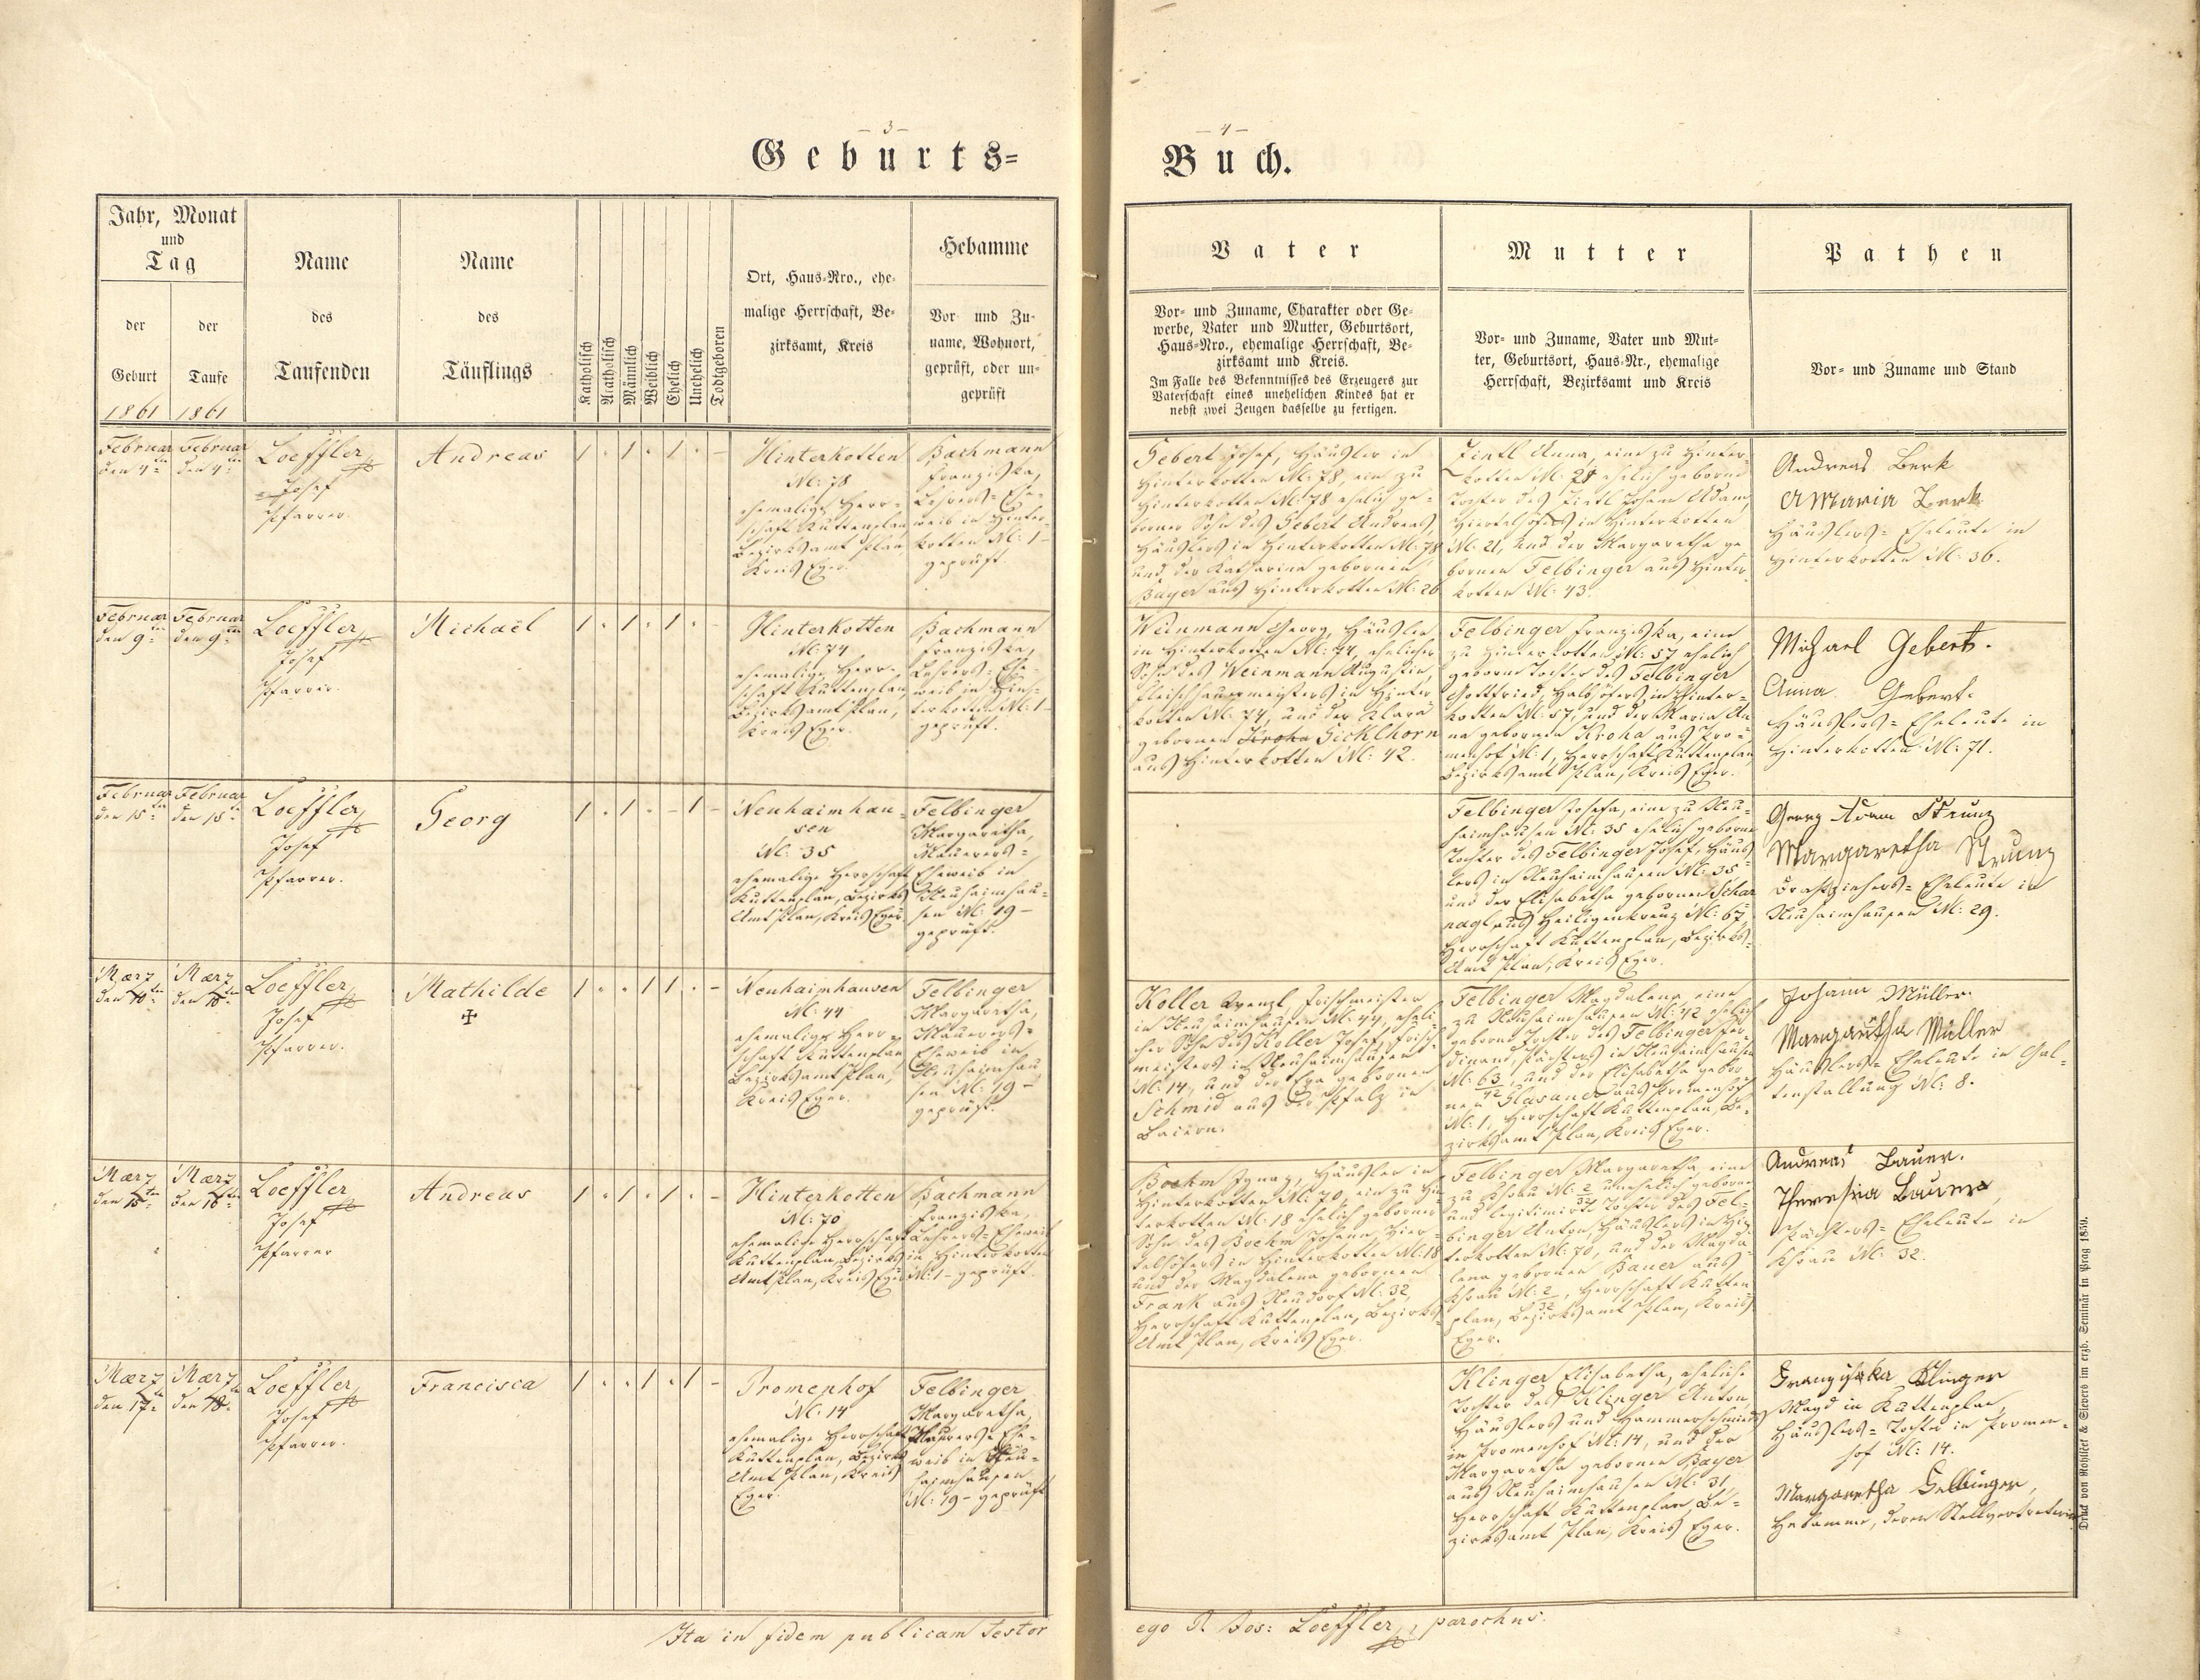 — 3 —
Geburts=
Jahr, Monat
und
Tag
der
Geburt
1861
der
Taufe
1861
Name
des
Taufenden
Name
des
Täuflings
Katholisch
Akatholisch
Männlich
Weiblich
Ehelich
Unehelich
Todtgeboren
Ort, Haus-Nro., ehe-
malige Herrschaft, Be-
zirksamt, Kreis
Hebamme
Vor- und Zu-
name, Wohnort,
geprüft, oder un-
geprüft
Februar
den 4ten
Februar
den 4ten
Loeffler
Josef
Pfarrer.
Andreas
Hinterkotten
N: 78
ehemalige Herr-
schaft Kuttenplan,
Bezirksamt Plan,
Kreis Eger.
Bachmann
Franziska,
Lehrers= Ehe-
weib in Hinter-
kotten N: 1 –
geprüft.
Februar
den 9ten
Februar
den 9ten
Loeffler
Josef
Pfarrer.
Michaël
Hinterkotten
N: 74
ehemalige Herr-
schaft Kuttenplan,
Bezirksamt Plan,
Kreis Eger.
Bachmann
Franziska,
Lehrers= Ehe-
weib in Hin-
terkotten N: 1 –
geprüft.
Februar
den 15ten
Februar
den 15ten
Loeffler
Josef
Pfarrer.
Georg
Neuhaimhau-
sen
N: 35
ehemalige Herrschaft
Kuttenplan, Bezirks
Amt Plan, Kreis Eger.
Felbinger
Margaretha,
Maurers=
Eheweib in
Neuhaimhau-
sen N: 19 –
geprüft.
Maerz
den 10ten
Maerz
den 10ten
Loeffler
Josef
Pfarrer.
Mathilde
✠
Neuhaimhausen
N: 44
ehemalige Herr-
schaft Kuttenplan,
Bezirksamt Plan,
Kreis Eger.
Felbinger
Margaretha,
Maurers=
Eheweib in
Neuhaimhau-
sen N: 19 –
geprüft.
Maerz
den 15ten
Maerz
den 16ten
Loeffler
Josef
Pfarrer
Andreas
Hinterkotten
N: 70
ehemalige Herrschaft
Kuttenplan, Bezirks
Amt Plan, Kreis Eger
Bachmann
Franziska,
Lehrers= Eheweib
in Hinterkotten
N: 1 – geprüft.
Maerz
den 17ten
Maerz
den 18ten
Loeffler
Josef
Pfarrer.
Francisca
Promenhof
N: 14
ehemalige Herrschaft
Kuttenplan, Bezirks
Amt Plan, Kreis
Eger.
Felbinger
Margaretha,
Maurers= Ehe-
weib in Neu-
haimhausen
N: 19 – geprüft
Ita in fidem publicam testor
— 4 —
Buch.
Vater
Vor- und Zuname, Charakter oder Ge-
werbe, Vater und Mutter, Geburtsort,
Haus-Nro., ehemalige Herrschaft, Be-
zirksamt und Kreis.
Im Falle des Bekenntnisses des Erzeugers zur
Vaterschaft eines unehelichen Kindes hat er
nebst zwei Zeugen dasselbe zu fertigen.
Mutter
Vor- und Zuname, Vater und Mut-
ter, Geburtsort, Haus-Nr., ehemalige
Herrschaft, Bezirksamt und Kreis
Pathen
Vor- und Zuname und Stand
Gebert Josef, Häusler in
Hinterkotten N: 78, ein zu
Hinterkotten N: 78 ehelich ge-
borner Sohn des Gebert Andreas,
Häuslers in Hinterkotten N: 78
und der Katharina gebornen
Bayer aus Hinterkotten N: 26
Zintl Anna, eine zu Hinter-
kotten N: 21 ehelich geborne
Tochter des Zintl Johann Adam,
Viertelhöfers in Hinterkotten
N: 21, und der Margaretha ge-
bornen Felbinger aus Hinter-
kotten N: 43.
Andreas Berk
A Maria Berk
Häuslers= Eheleute in
Hinterkotten N: 36.
Weinmann Georg, Häusler
in Hinterkotten N: 74, ehelicher
Sohn des Weinmann Augustin,
Fleischhauermeisters in Hinter-
kotten N: 74, und der Klara
gebornen Kroha Sichlhorn
aus Hinterkotten N: 42.
Felbinger Franziska, eine
zu Hinterkotten N: 57 ehelich
geborne Tochter des Felbinger
Gottfried, Halbhöfers in Hinter-
kotten N: 57, und der Maria An
na gebornen Kroha aus Pro-
menhof N: 1, Herrschaft Kuttenplan
Bezirksamt Plan, Kreis Eger.
Michael Gebert.
Anna Gebert.
Häuslers= Eheleute in
Hinterkotten N: 71.
Felbinger Josefa, eine zu Neu-
haimhausen N: 35 ehelich geborne
Tochter des Felbinger Josef, Häus-
lers in Neuhaimhausen N: 35
und der Elisabetha gebornen Schar
nagl aus Heiligenkreuz N: 67
Herrschaft Kuttenplan, Bezirks-
Amt Plan, Kreis Eger.
Georg Adam Strunz
Margaretha Strunz
Drahtziehers= Eheleute in
Neuhaimhausen N: 29.
Koller Wenzl, Frischmeister
in Neuhaimhausen N: 44, eheli-
cher Sohn des Koller Josef, Frisch-
meisters in Neuhaimhausen
N: 14, und der Eva gebornen
Schmid aus der Pfalz in
Baiern.
Felbinger Magdalena, eine
zu Neuhaimhausen N: 42 ehelich
geborne Tochter des Felbinger Fer-
dinand, Pächters in Neuhaimhausen
N: 63/42, und der Elisabetha gebor-
nen Glasauer aus Promenhof
N: 1, Herrschaft Kuttenplan, Be-
zirksamt Plan, Kreis Eger.
Johann Müller.
Margaretha Müller
Häuslers= Eheleute in Gal-
tenstallung N: 8.
Boehm Ignaz, Häusler in
Hinterkotten N: 70, ein zu Hin-
terkotten N: 18 ehelich geborner
Sohn des Boehm Johann, Vier-
telhöfers in Hinterkotten N: 18
und der Magdalena gebornen
Frank aus Neudorf N: 32,
Herrschaft Kuttenplan, Bezirks-
Amt Plan, Kreis Eger.
Felbinger Margaretha, eine
zu Khoau N: 2/32 unehelich geborne
und legitimirte Tochter des Fel-
binger Anton, Häuslers in Hin-
terkotten N: 70, und der Magda-
lena gebornen Bauer aus
Khoau N: 2/32, Herrschaft Kutten-
plan, Bezirksamt Plan, Kreis
Eger.
Andreas Bauer.
Theresia Bauer,
Pächters= Eheleute in
Khoau N: 32.
Klinger Elisabetha, eheliche
Tochter des Klinger Anton,
Häuslers und Hammerschmieds
in Promenhof N: 14, und der
Margaretha gebornen Bayer
aus Neuhaimhausen N: 31,
Herrschaft Kuttenplan, Be-
zirksamt Plan, Kreis Eger.
Franziska Klinger
Magd in Kuttenplan,
Häuslers= Tochter in Promen-
hof N: 14.
Margaretha Felbinger,
Hebamme, deren Stellvertreterin
ego P. Jos: Loeffler, parochus.
Druck von Rohliček & Sievers im erzb. Seminär in Prag 1859.